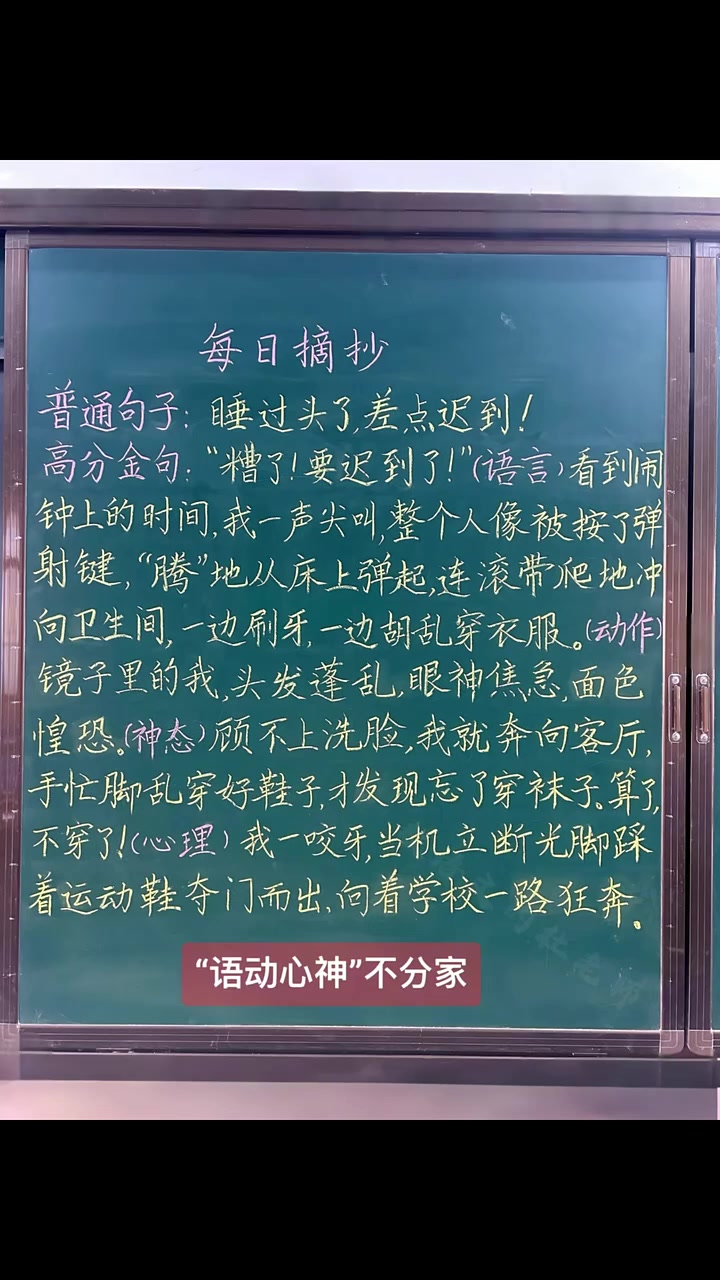 每日摘抄
普通句子：睡过头了,差点迟到！
高分金句：“糟了！要迟到了！”（语言）看到闹
钟上的时间,我一声尖叫,整个人像被按了弹
射键,“腾”地从床上弹起,连滚带爬地冲
向卫生间,一边刷牙,一边胡乱穿衣服。（动作）
镜子里的我,头发蓬乱,眼神焦急,面色
惶恐。（神态）顾不上洗脸,我就奔向客厅,
手忙脚乱穿好鞋子,才发现忘了穿袜子。算了,
不穿了！（心理）我一咬牙,当机立断光脚踩
着运动鞋夺门而出,向着学校一路狂奔。
“语动心神”不分家